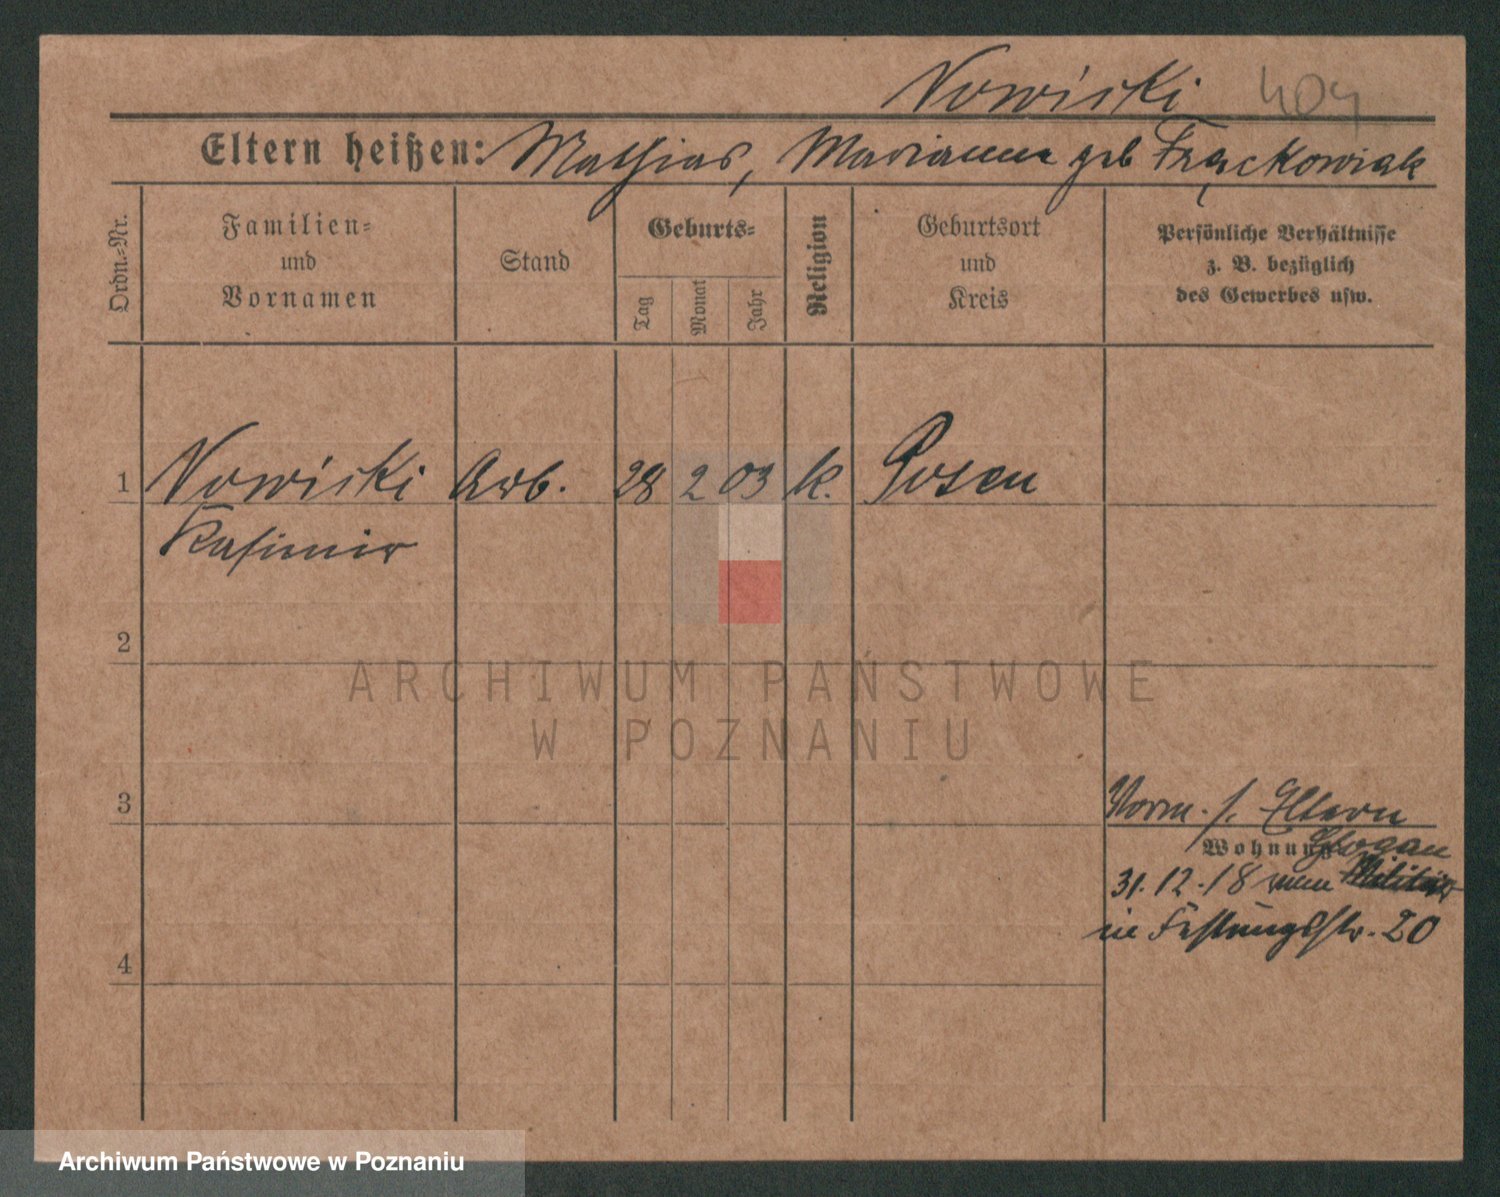 Nowicki 409
Eltern heißen: Mathias, Marianna geb Frąckowiak
Ordn.-Nr.
Familien=
und
Vornamen
Stand
Geburts=
Tag
Monat
Jahr
Religion
Geburtsort
und
Kreis
Persönliche Verhältnisse
z. B. bezüglich
des Gewerbes usw.
1 Nowicki Arb. 28 2 03 k. Posen
Kasimir
2
ARCHIWUM PAŃSTWOWE
W POZNANIU
3
Vorm. s. Eltern
Wohnung Glogau
31.12.18 Militär
in Festungsstr. 20
4
Archiwum Państwowe w Poznaniu